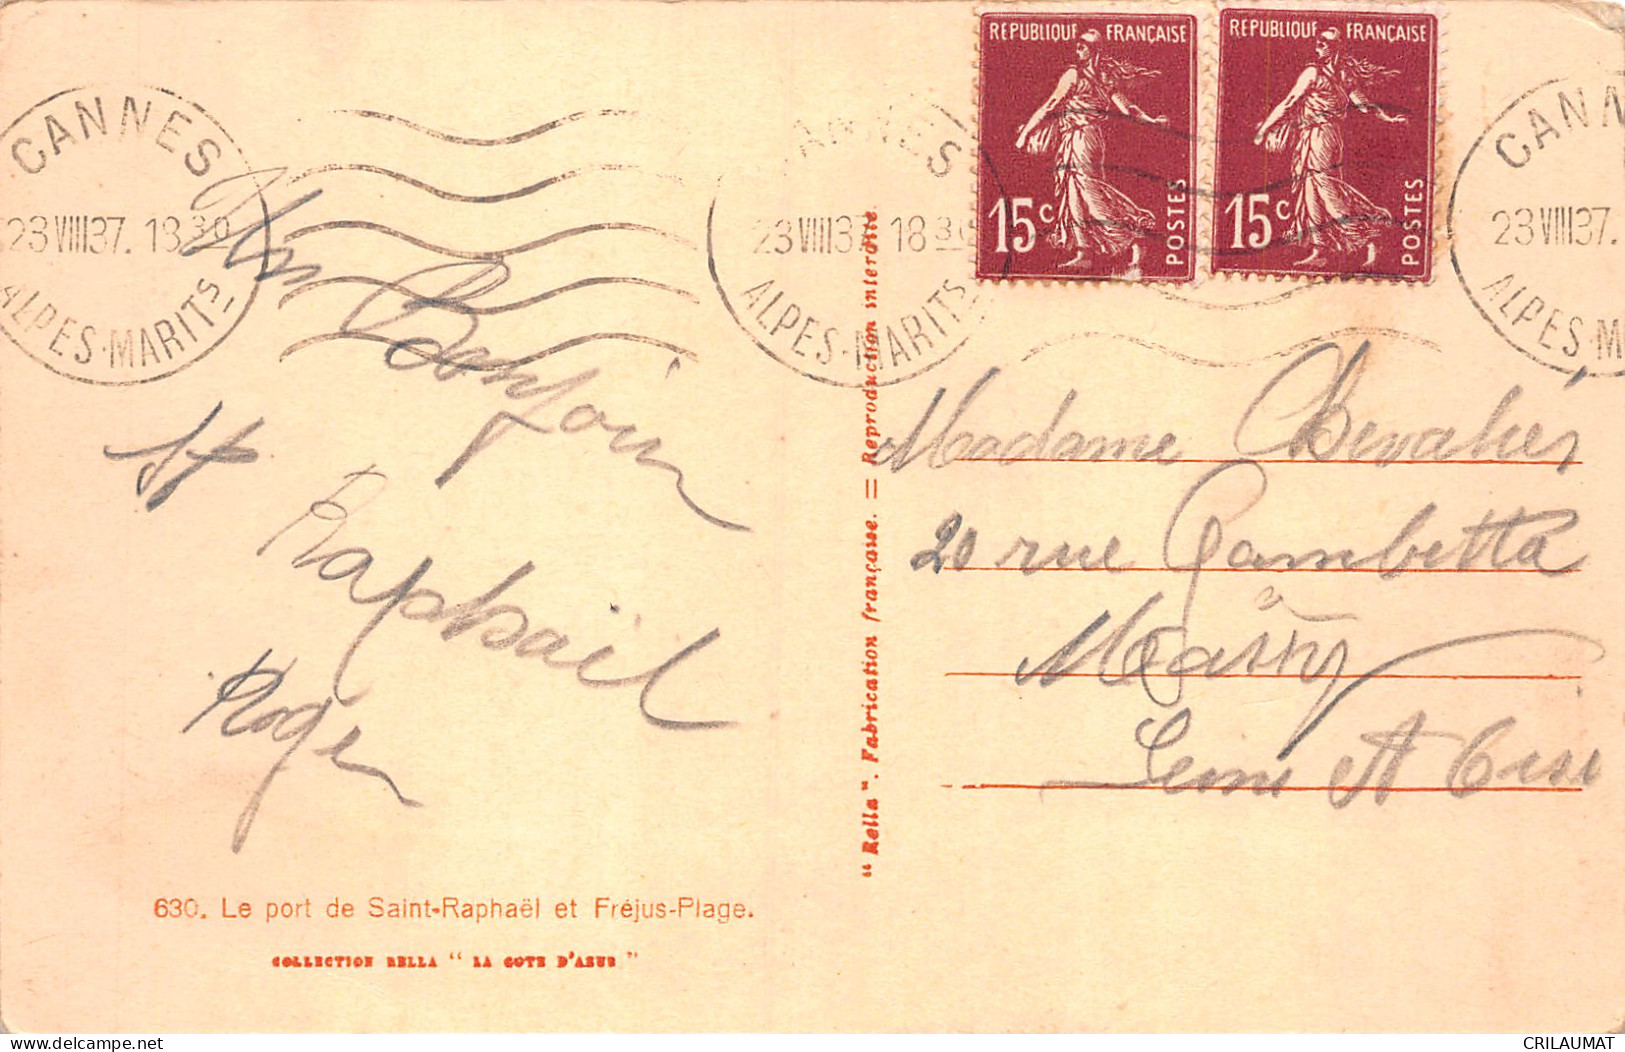 CANNES
23 VIII 37. 18 30
ALPES-MARITS
CANNES
23 VIII 37 18 30
ALPES-MARITS
REPUBLIQUE FRANÇAISE
15c
POSTES
REPUBLIQUE FRANÇAISE
15c
POSTES
CANN
23 VIII 37.
ALPES-M
Un Bonjour
St
Raphaël
Roger
630. Le port de Saint-Raphaël et Fréjus-Plage.
COLLECTION RELLA “ LA COTE D'AZUR ”
“ Rella ”. Fabrication française. = Reproduction interdite
Madame Chevalier
20 rue Gambetta
à
Massy
Seine et Oise
CRILAUMAT